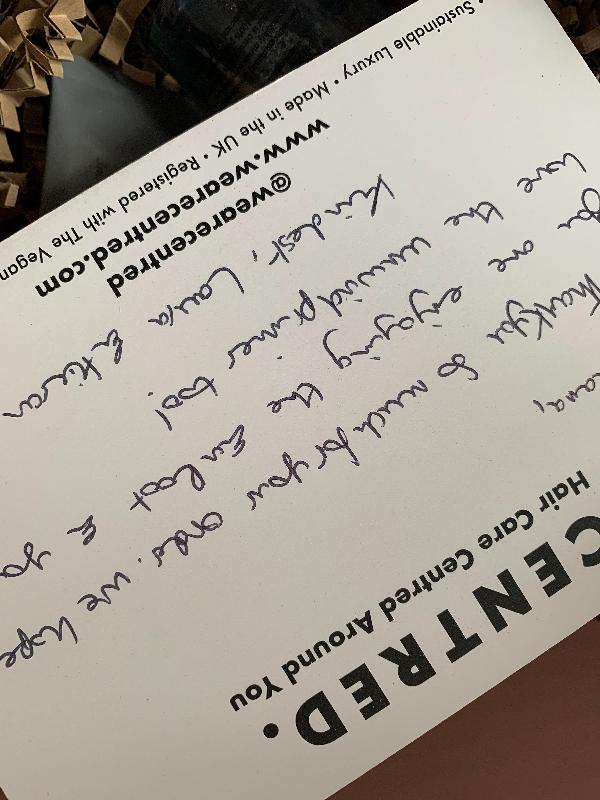 CENTRED.
Hair Care Centred Around You
Thankyou so much for your order. We hope
you are enjoying the En Root & yo
love the unwind primer too!
Kindest, Laura & Kieran
@wearecentred
www.wearecentred.com
• Sustainable Luxury • Made in the UK • Registered with The Vegan